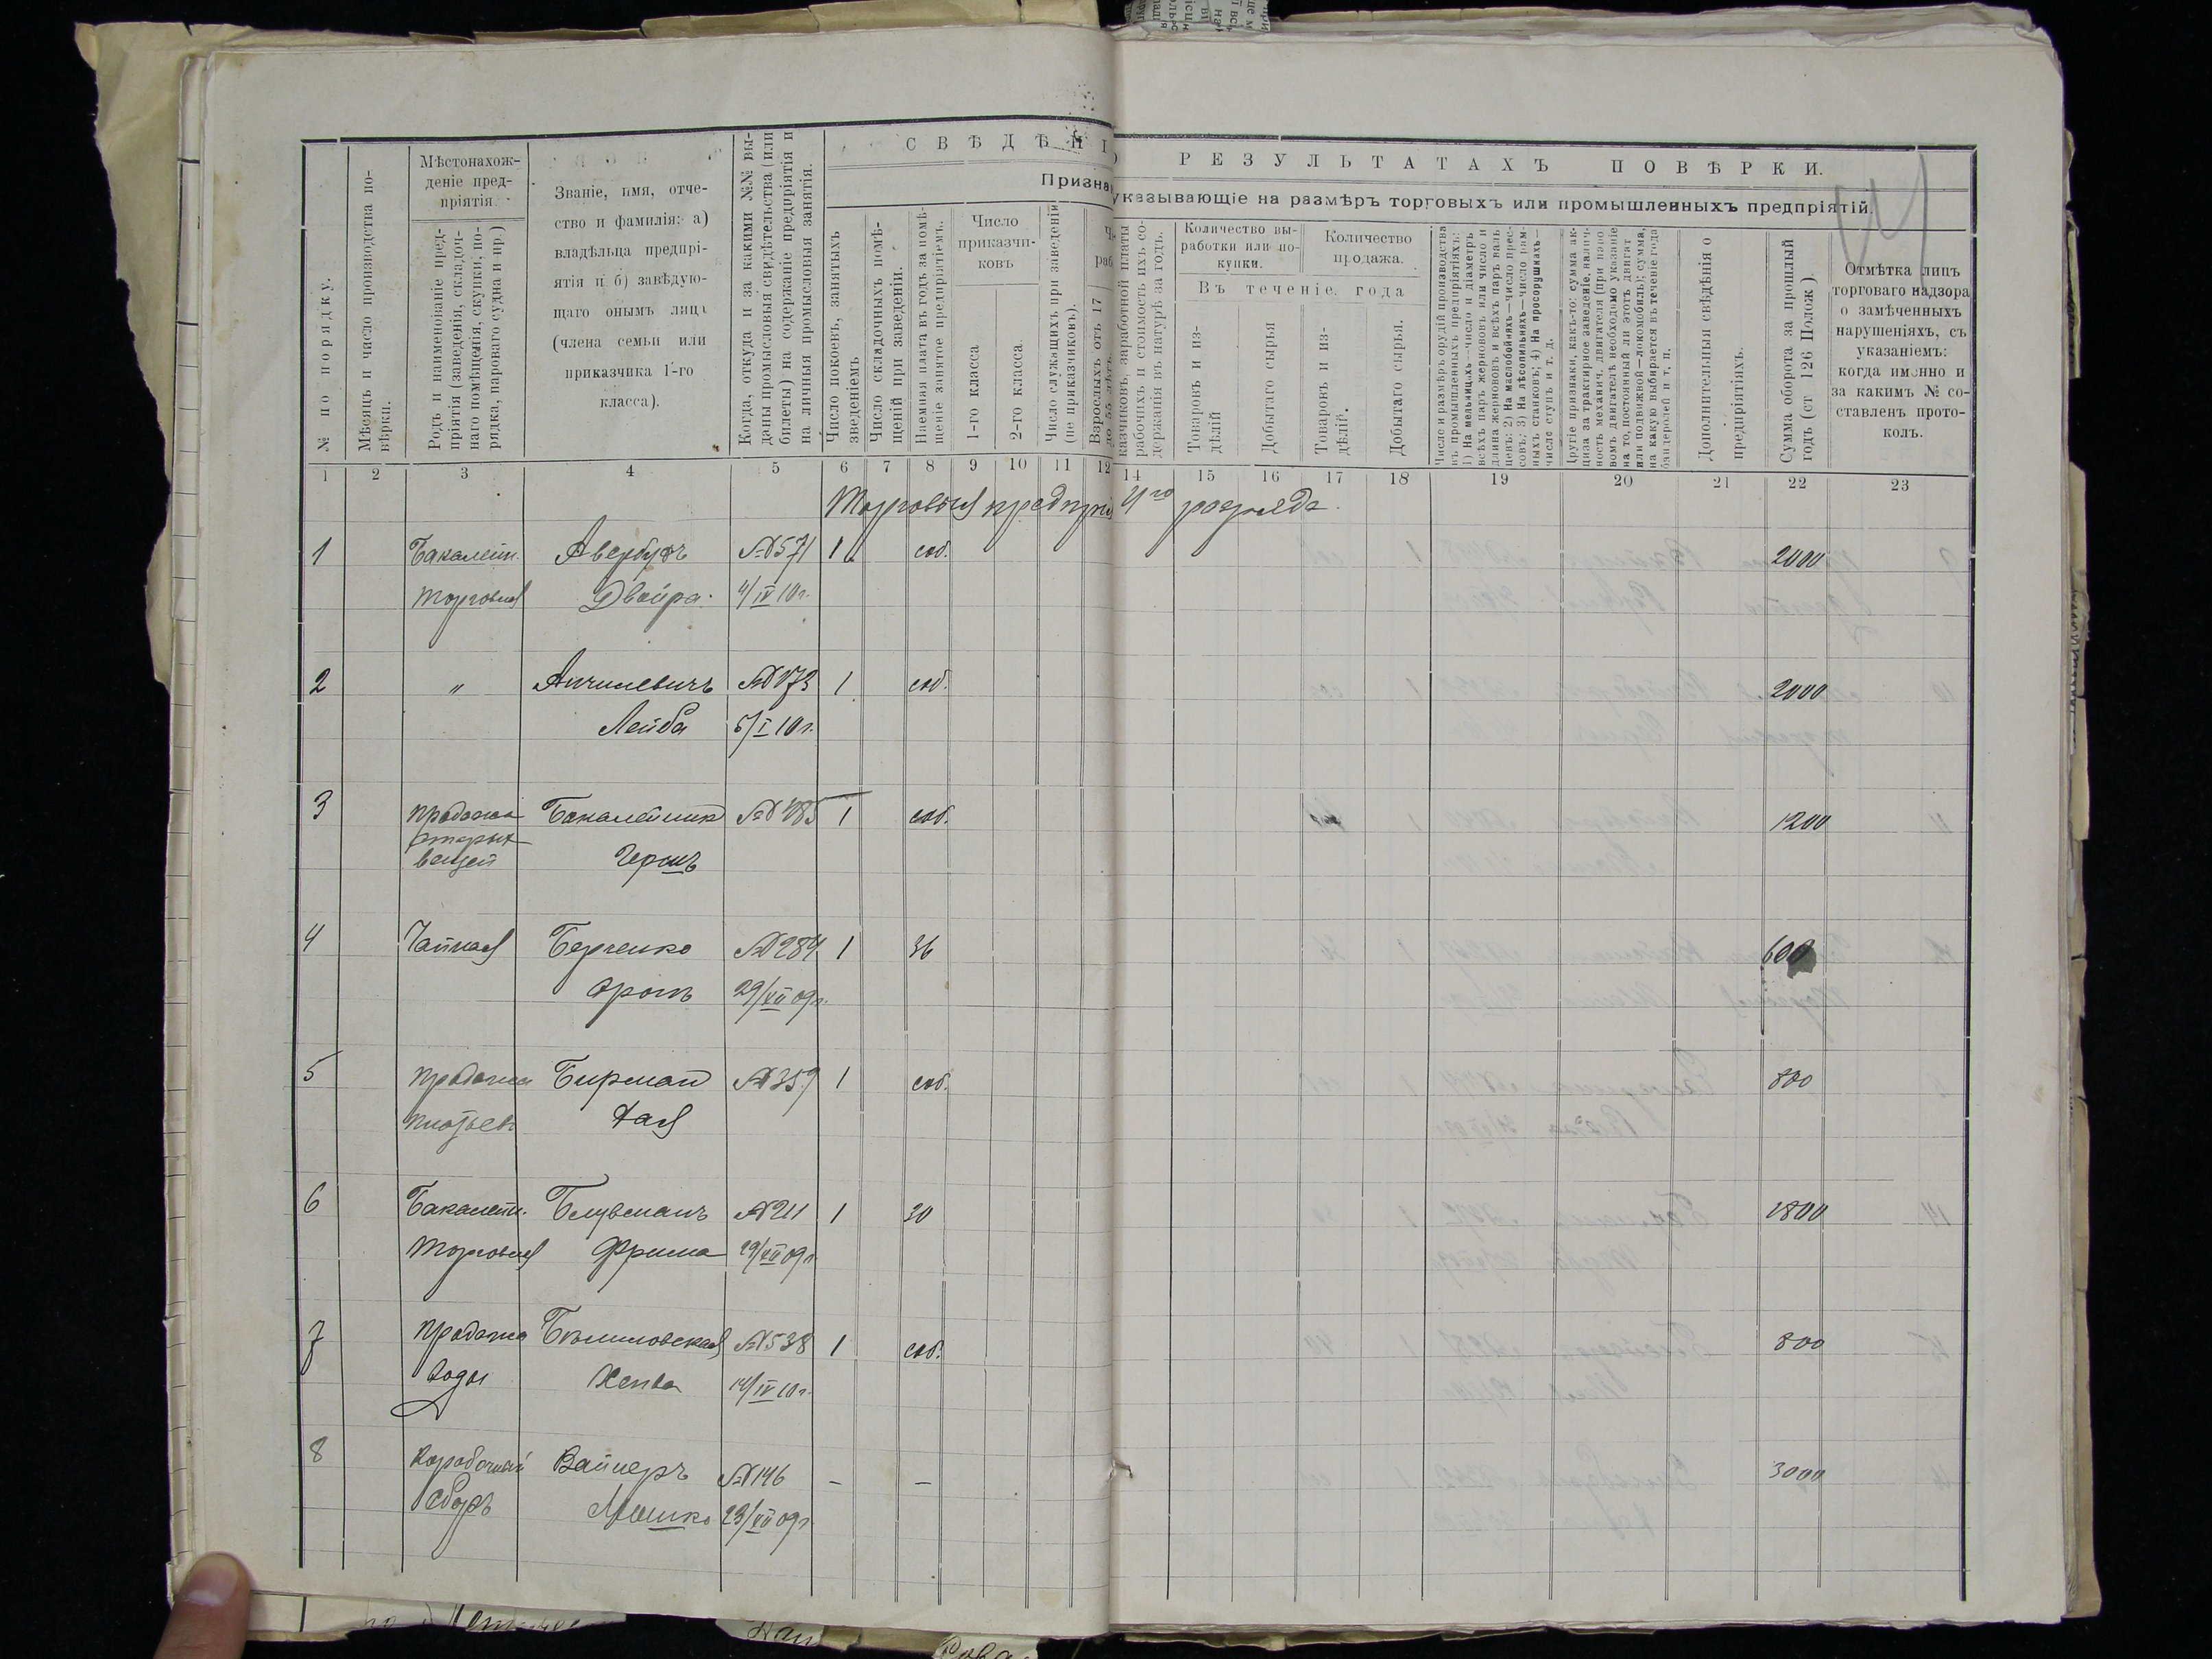 СВѢДѢНІ
О РЕЗУЛЬТАТАХЪ ПОВѢРКИ.
Призна
указывающіе на размѣръ торговыхъ или промышленныхъ предпріятій.
№ по порядку.
Мѣсяцъ и число производства по-
вѣрки.
Мѣстонахож-
деніе пред-
пріятія
Родъ и наименованіе пред-
пріятія (заведенія, складоч-
наго помѣщенія, скупки, по-
ряда, парового судна и пр.)
Званіе, имя, отче-
ство и фамилія: а)
владѣльца предпрі-
ятія и б) завѣдую-
щаго онымъ лица
(члена семьи или
приказчика 1-го
класса).
Когда, откуда и за какими №№ вы-
даны промысловыя свидѣтельства (или
билеты) на содержаніе предпріятія и
на личныя промысловыя занятія.
Число покоевъ, занятыхъ
зведеніемъ
Число складочныхъ помѣ-
щеній при заведеніи.
Наемная плата въ годъ за помѣ-
щеніе занятое предпріятіемъ.
Число
приказчи-
ковъ
1-го класса
2-го класса.
Число служащихъ при заведеніи
(не приказчиковъ).
Взрослыхъ отъ 17
казчиковъ, заработной платы
рабочихъ и стоимость ихъ со-
держанія въ натурѣ за годъ.
Количество вы-
работки или по-
купки.
Количество
продажа.
Въ теченіе года
Товаровъ и из-
дѣлій
Добытаго сырья
Товаровъ и из-
дѣлій.
Добытаго сырья.
Число и размѣръ орудій производства
въ промышленныхъ предпріятіяхъ:
1) На мельницахъ—число и діаметръ
всѣхъ паръ жернововъ или число и
длина жернововъ и всѣхъ паръ валь
цевъ; 2) На маслобойняхъ—число прес-
совъ; 3) На лѣсопильняхъ—число рам-
ныхъ станковъ; 4) На просорушкахъ—
число ступъ и т. д.
Другіе признаки, какъ-то: сумма ак-
циза за трактирное заведеніе, налич-
ность механич. двигателя (при паро
вомъ двигателѣ необходимо указаніе
на то, постоянный ли этотъ двигат
или подвижной—локомобиль); сумма,
на какую выбирается въ теченіе года
бандеролей и т. п.
Дополнительныя свѣдѣнія о
предпріятіяхъ.
Сумма оборота за прошлый
годъ (ст 126 Полож).
Отмѣтка лицъ
торговаго надзора
о замѣченныхъ
нарушеніяхъ, съ
указаніемъ:
когда именно и
за какимъ № со-
ставленъ прото-
колъ.
1 2 3 4 5 6 7 8 9 10 11 12 14 15 16 17 18 19 20 21 22 23
Торговыя предпрія 4го разряда
1 Бакалейн. Авербухъ №571 1 соб. 2000
торговля Двойра 4/IV 10 г.
2 " Анчилевичъ №173 1 соб. 2000
Лейба 5/I 10 г.
3 продажа Бакалейник №485 1 соб. 1200
старых
вещей Гершъ
4 Чайная Берченко №284 1 36 600
Аронъ 29/XII 09 г.
5 продажа Бирман №359 1 соб. 800
платьев Хая
6 Бакалейн. Блувманъ №211 1 30 1800
торговля Фрима 29/XII 09 г.
7 продажа №538 1 соб. 800
воды 14/IV 10 г.
8 Коробочный Вайнеръ №146 – – 3000
сборъ Мошко 29/XII 09 г.